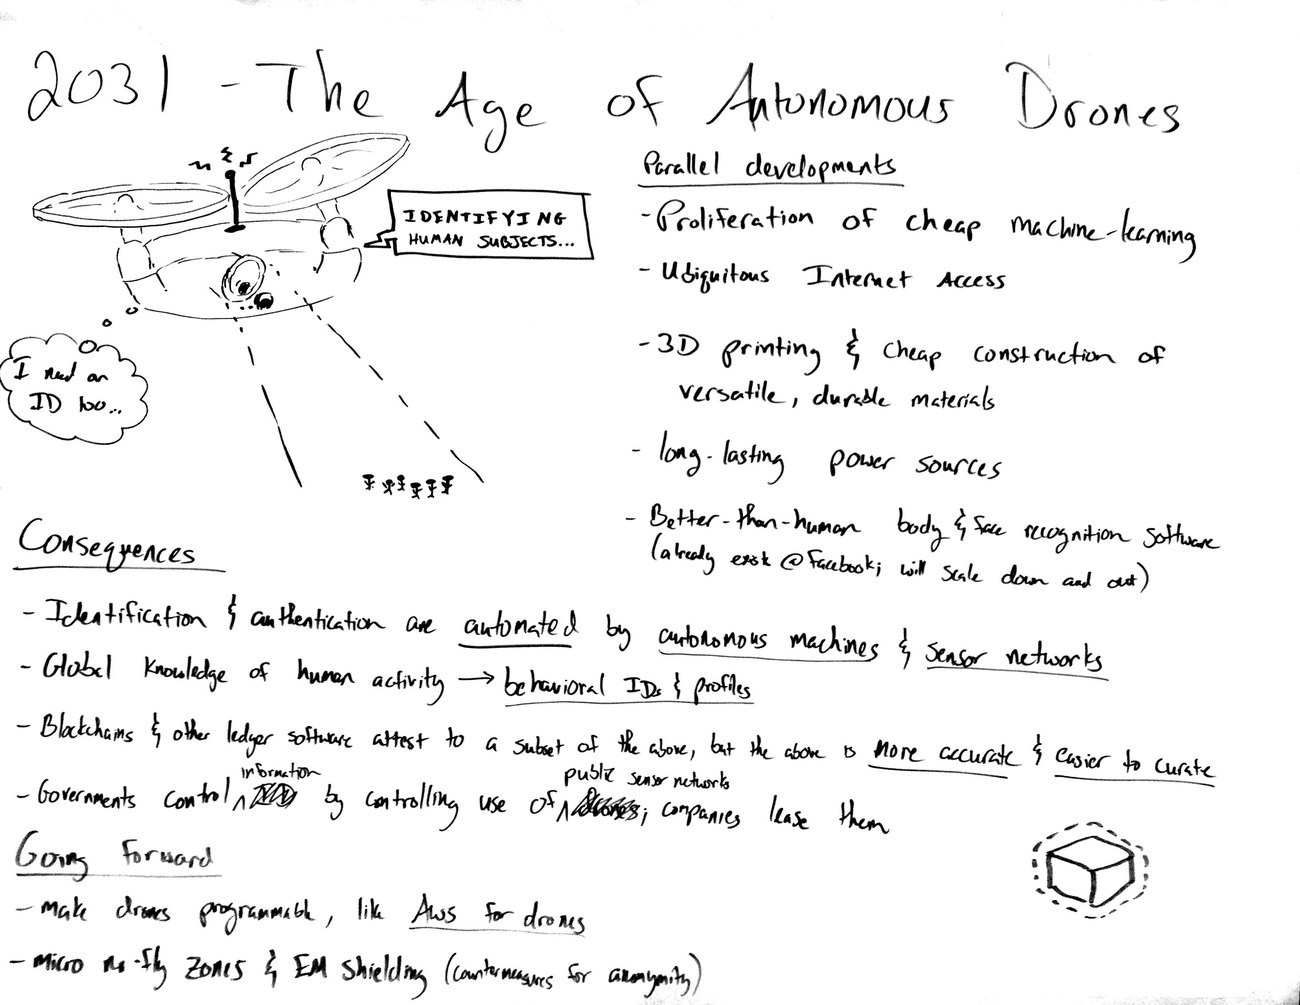 2031 - The Age of Autonomous Drones
IDENTIFYING
HUMAN SUBJECTS...
I need an
ID too...
Parallel developments
- Proliferation of cheap machine-learning
- Ubiquitous Internet Access
- 3D printing & cheap construction of
versatile, durable materials
- long-lasting power sources
- Better-than-human body & face recognition software
(already exists @ Facebook; will scale down and out)
Consequences
- Identification & authentication are automated by autonomous machines & sensor networks
- Global knowledge of human activity → behavioral IDs & profiles
- Blockchains & other ledger software attest to a subset of the above, but the above is more accurate & easier to curate
- Governments control information by controlling use of public sensor networks; companies lease them
Going forward
- make drones programmable, like AWS for drones
- micro no-fly zones & EM shielding (countermeasures for anonymity)